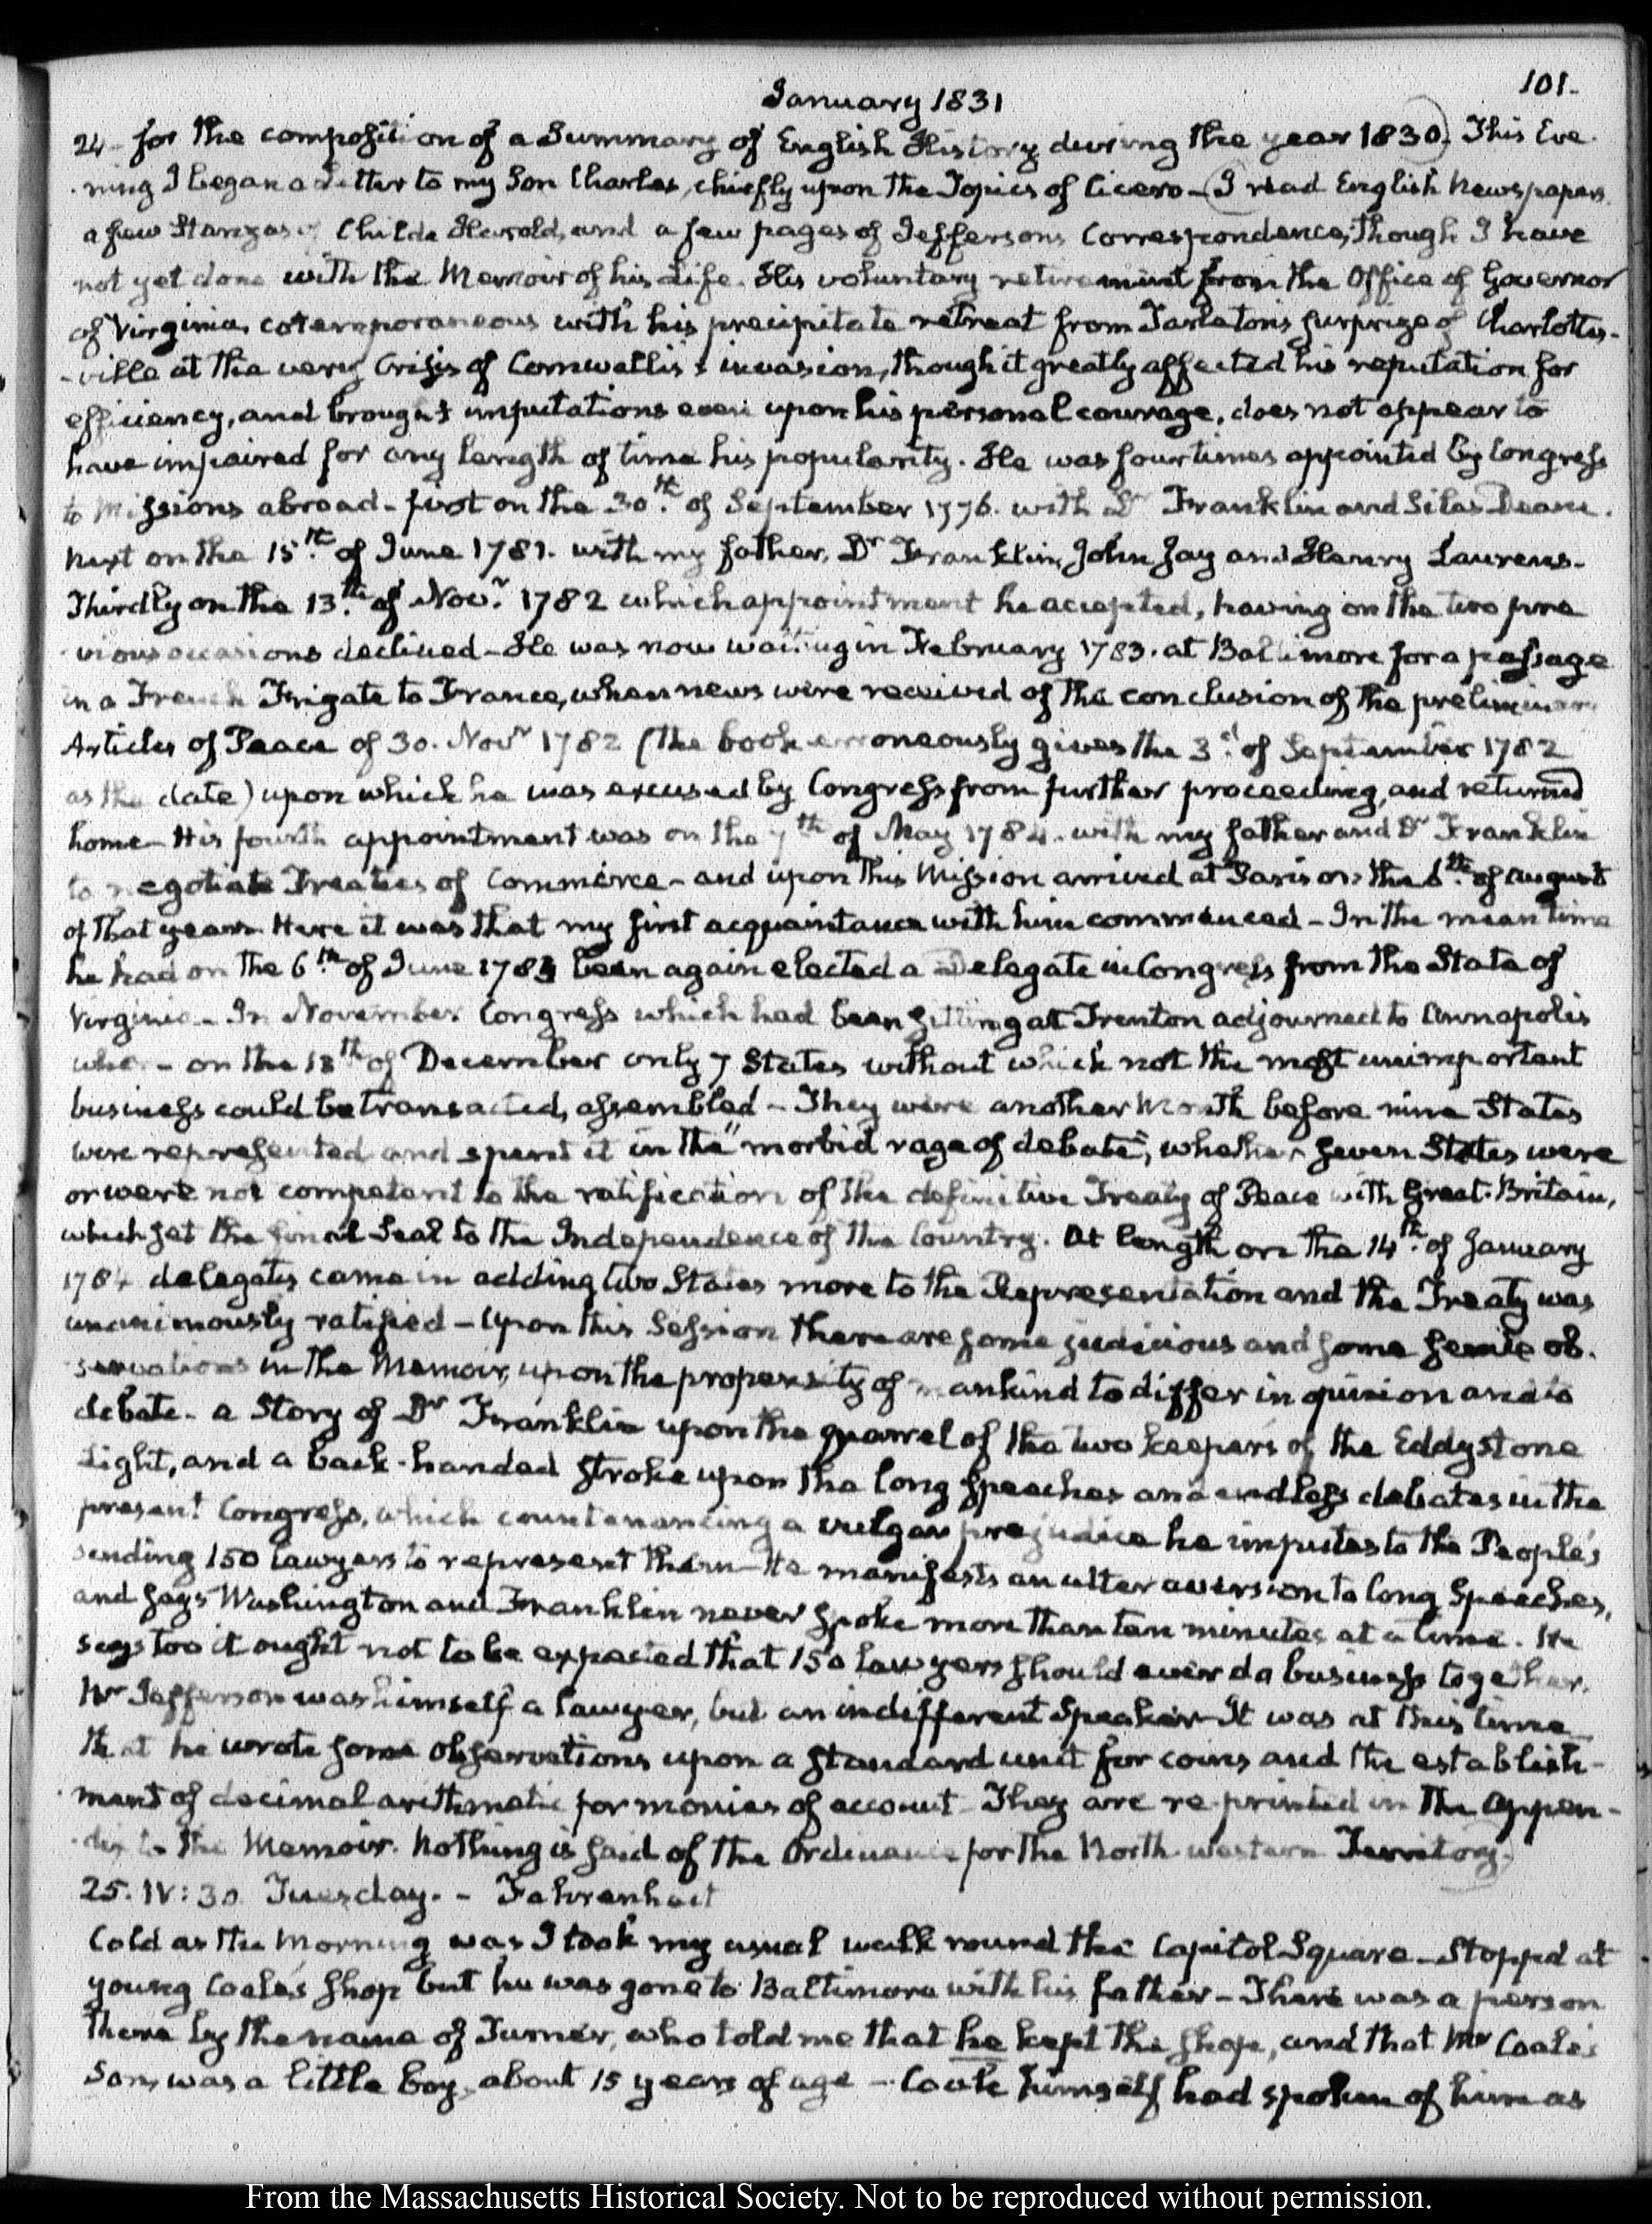 101.
January 1831
24 for the composition of a Summary of English History during the year 1830. This Eve-
ning I began a Letter to my Son Charles, chiefly upon the Topics of Cicero - I read English Newspapers,
a few Stanzas of Childe Harold, and a few pages of Jeffersons Correspondence; though I have
not yet done with the Memoir of his Life. His voluntary retirement from the Office of Governor
of Virginia, cotemporaneous with his precipitate retreat from Tarleton's surprize of Charlottes-
-ville at the very Crisis of Cornwallis's invasion, though it greatly affected his reputation for
efficiency, and brought imputations even upon his personal courage, does not appear to
have impaired for any length of time his popularity. He was four times appointed by Congress
to Missions abroad - first on the 30th. of September 1776. with Dr Franklin and Silas Deane.
Next on the 15th. of June 1781. with my father, Dr Franklin, John Jay and Henry Laurens.
Thirdly on the 13th. of Novr. 1782 which appointment he accepted, having on the two pre
vious occasions declined - He was now waiting in February 1783. at Baltimore for a passage
in a French Frigate to France, when news were received of the conclusion of the preliminary
Articles of Peace of 30. Novr 1782 (the book erroneously gives the 3d. of September 1782
as the date) upon which he was excused by Congress from further proceeding, and returned
home - His fourth appointment was on the 7th of May 1784. with my father and Dr Franklin
to negotiate Treaties of Commerce - and upon this Mission arrived at Paris on the 6th. of August
of that year. Here it was that my first acquaintance with him commenced - In the mean time
he had on the 6th. of June 1783 been again elected a Delegate in Congress from the State of
Virginia - In November Congress which had been sitting at Trenton adjourned to Annapolis
where - on the 13th of December only 7 States without which not the most unimportant
business could be transacted, assembled - They were another Month before nine States
were represented and spent it in the "morbid rage of debate", whether seven States were
or were not competent to the ratification of the definitive Treaty of Peace with Great-Britain,
which set the final Seal to the Independence of the Country. At length on the 14th. of January
1784 delegates came in adding two States more to the Representation and the Treaty was
unanimously ratified - Upon this Session there are some judicious and some senile ob-
servations in the Memoir, upon the propensity of mankind to differ in opinion and to
debate - a Story of Dr Franklin upon the quarrel of the two keepers of the Eddystone
Light, and a back-handed stroke upon the long speeches and endless debates in the
present Congress, which countenancing a vulgar prejudice he imputes to the People's
sending 150 lawyers to represent them - He manifests an utter aversion to long Speeches,
and says Washington and Franklin never spoke more than ten minutes at a time. He
says too it ought not to be expected that 150 lawyers should ever do business together.
Mr Jefferson was himself a lawyer, but an indifferent Speaker - It was at this time
that he wrote some observations upon a standard unit for coins and the establish-
ment of decimal arithmetic for monies of account - They are re-printed in the Appen-
dix to the Memoir. Nothing is said of the Ordinance for the North-western Territory.
25. IV:30. Tuesday. - Fahrenheit
Cold as the Morning was I took my usual walk round the Capitol Square - Stopped at
young Coale's shop but he was gone to Baltimore with his father - There was a person
there by the name of Turner, who told me that he kept the shop, and that Mr Coale's
Son, was a little boy, about 15 years of age - Coale himself had spoken of him as
From the Massachusetts Historical Society. Not to be reproduced without permission.